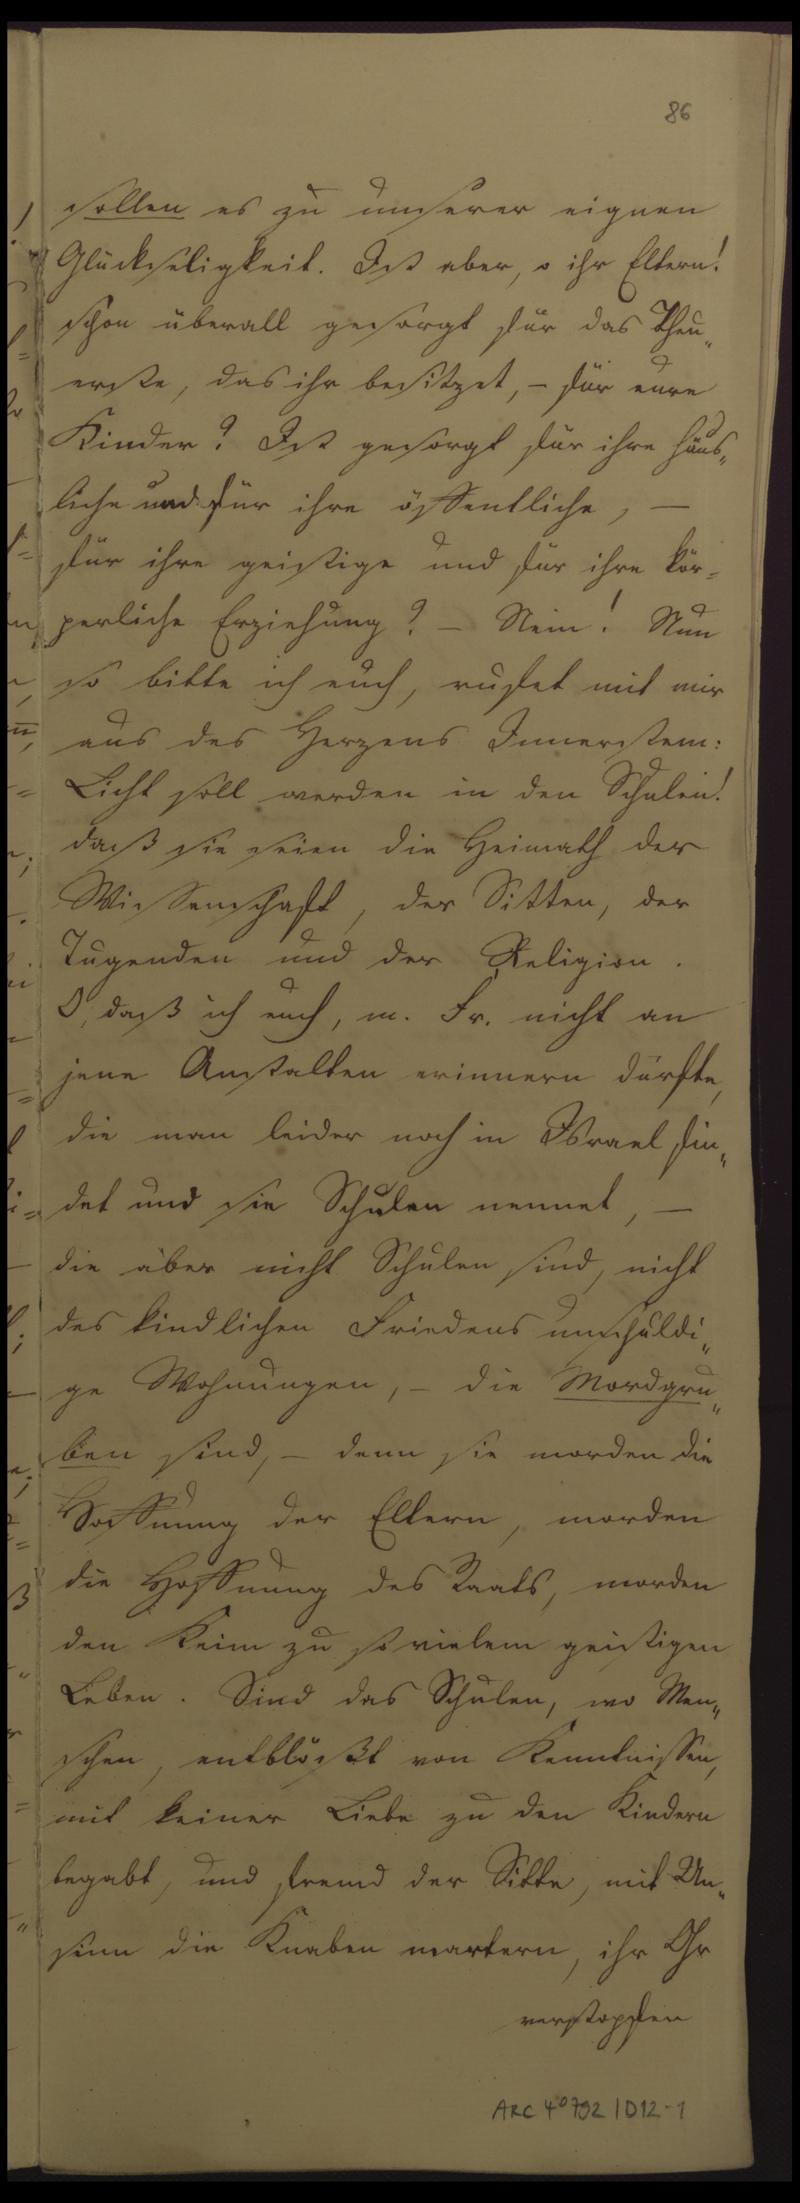 86
sollen es zu unserer eignen
Glückseligkeit. Ist aber, o ihr Eltern!
schon überall gesorgt für das Theu„
erste, das ihr besitzet, – für eure
Kinder? Ist gesorgt für ihre häus„
liche und für ihre öffentliche, —
für ihre geistige und für ihre kör=
perliche Erziehung? – Nein! Nun
so bitte ich euch, rufet mit mir
aus des Herzens Innerstem:
Licht soll werden in den Schulen!
daß sie seien die Heimath der
Wissenschaft, der Sitten, der
Tugenden und der Religion.
O, daß ich euch, m. Fr. nicht an
jene Anstalten erinnern dürfte,
die man leider noch in Israel fin„
det und sie Schulen nennet, —
die aber nicht Schulen sind, nicht
des kindlichen Friedens unschuldi„
ge Wohnungen, – die Mordgru„
ben sind, – denn sie morden die
Hoffnung der Eltern, morden
die Hoffnung des Staats, morden
den Keim zu so vielem geistigen
Leben. Sind das Schulen, wo Men„
schen, entblößt von Kenntnissen,
mit keiner Liebe zu den Kindern
begabt, und fremd der Sitte, mit Un„
sinn die Knaben martern, ihr Ohr
verstopfen
ARC 4° 792 / D12-1